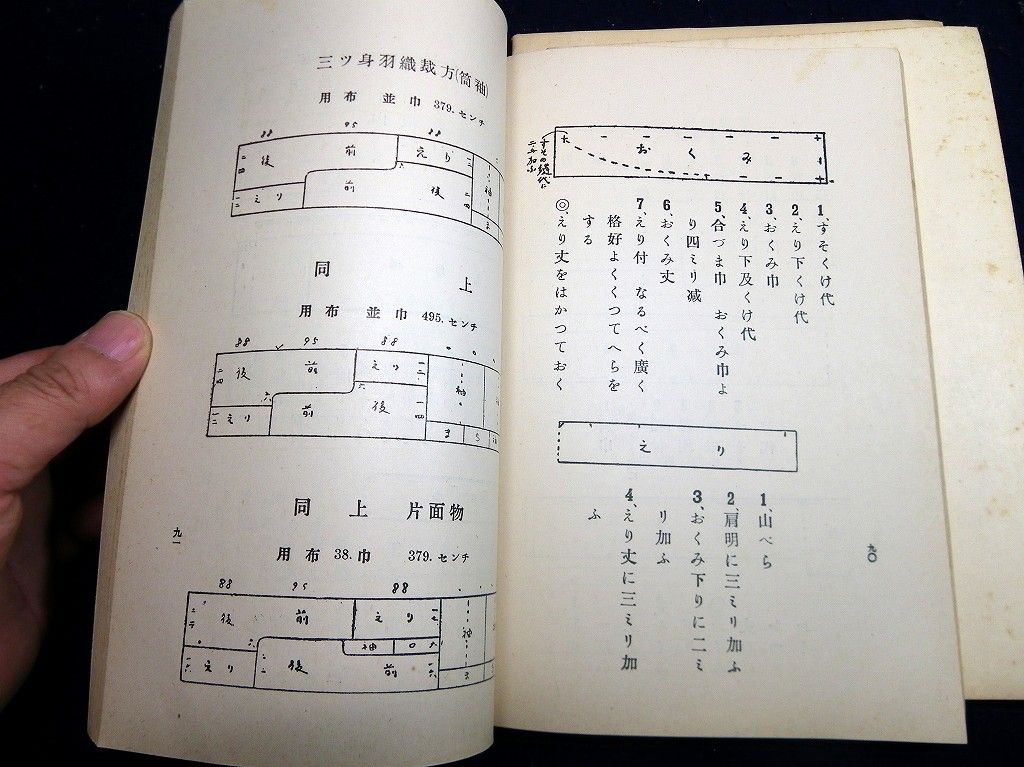 すその縫代に
おくみ
1、すそくけ代
2、えり下くけ代
3、おくみ巾
4、えり下及くけ代
5、合づま巾 おくみ巾よ
り四ミリ減
6、おくみ丈
7、えり付 なるべく廣く
格好よくくつてへらを
する
◎、えり丈をはかつておく
えり
1、山べら
2、肩明に三ミリ加ふ
3、おくみ下りに二ミ
リ加ふ
4、えり丈に三ミリ加
ふ
九〇
三ツ身羽織裁方(筒袖)
用布 並巾 379.センチ
88 95 88
後 前 えり
えり 前 後
袖
同上
用布 並巾 495.センチ
88 95 88
後 前 えり
えり 前 後
袖
ま ち
同上 片面物
用布 38.巾 379.センチ
88 95 88
後 前 えり
袖 口
えり 後 前
袖
九一